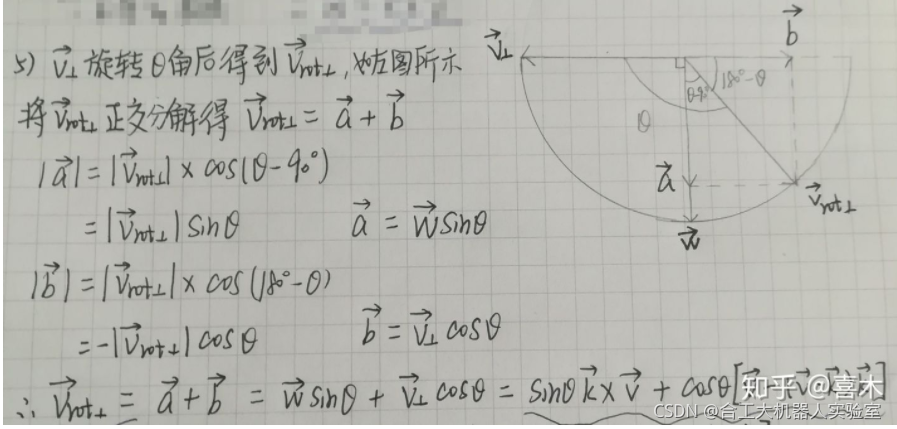 5) v⃗⊥ 旋转θ角后得到 v⃗rot⊥,如左图所示
将 v⃗rot⊥ 正交分解得 v⃗rot⊥ = a⃗ + b⃗
|a⃗| = |v⃗rot⊥| × cos(θ-90°)
= |v⃗rot⊥| sinθ a⃗ = w⃗ sinθ
|b⃗| = |v⃗rot⊥| × cos(180°-θ)
= -|v⃗rot⊥| cosθ b⃗ = v⃗⊥ cosθ
∴ v⃗rot⊥ = a⃗ + b⃗ = w⃗ sinθ + v⃗⊥ cosθ = sinθ k⃗ × v⃗ + cosθ[
v⃗⊥
b⃗
θ-90°
180°-θ
θ
a⃗
v⃗rot⊥
w⃗
知乎 @喜木
CSDN @合工大机器人实验室